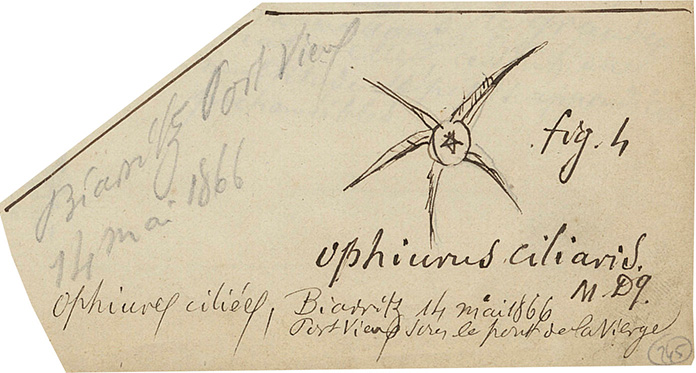 Biarritz Port Vieux
14 mai 1866
fig. 4
Ophiurus ciliaris.
M. Dq.
Ophiures ciliées, Biarritz 14 mai 1866
Port Vieux sous le pont de la Vierge
245